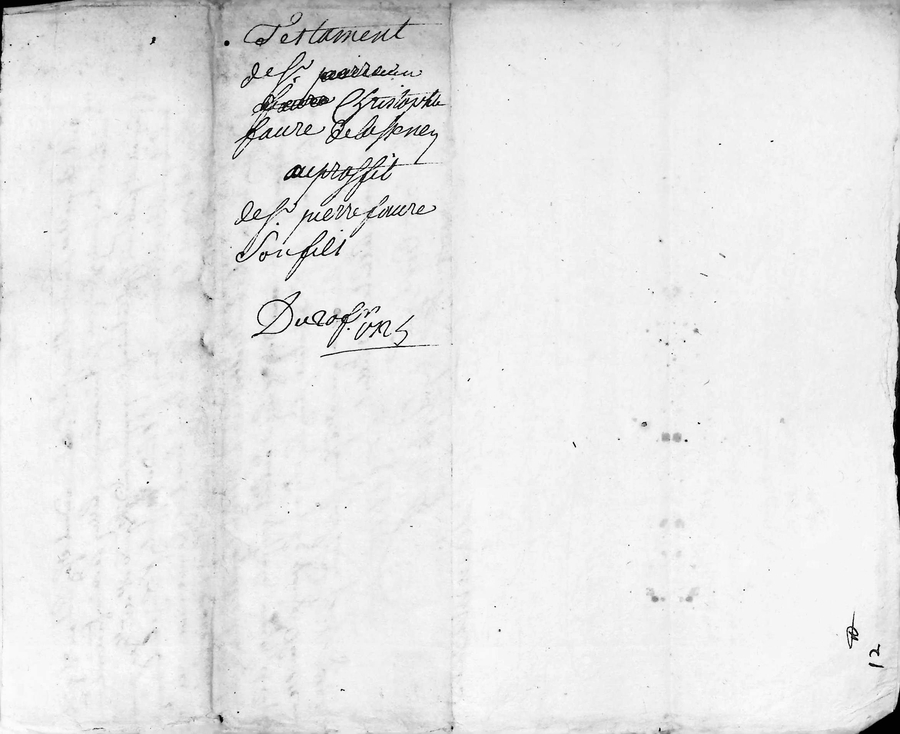 Testament
de Sr
Christophe
faure
au proffit
de Sr pierre faure
Son fils
Du 20 fr
12